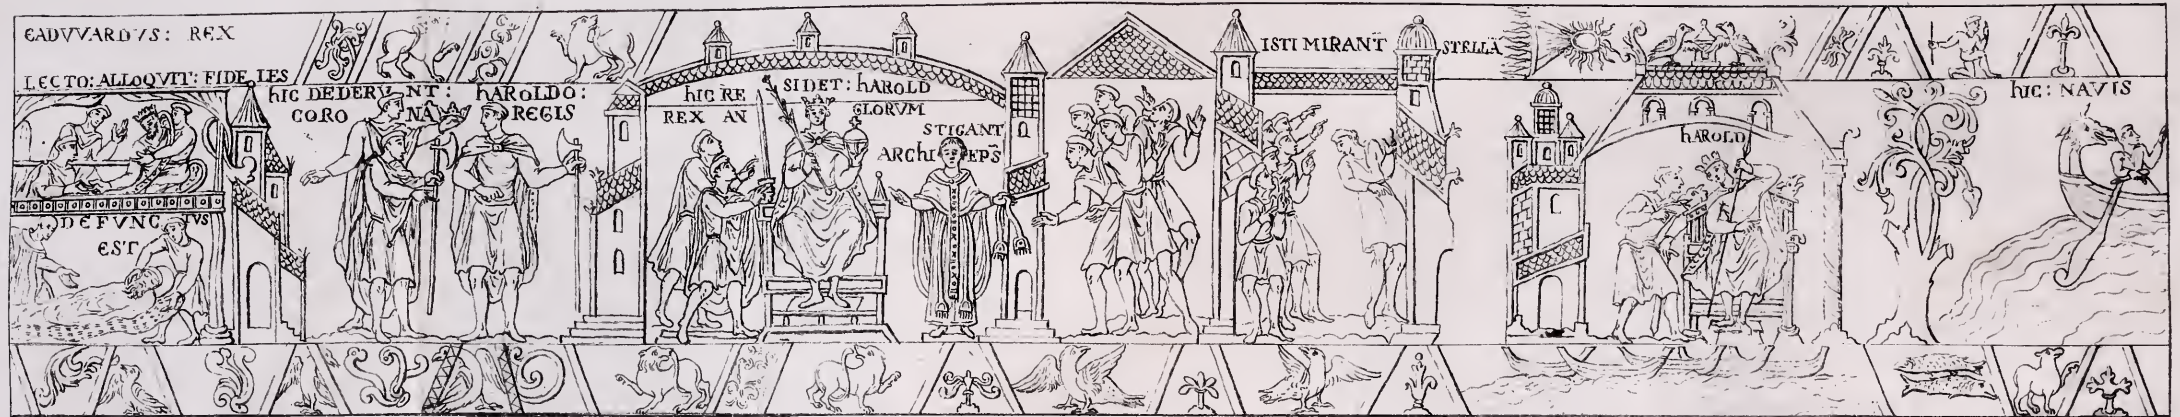 EADVVARDVS: REX
LECTO: ALLOQVIT: FIDELES
DEFVNCTVS
EST
hIC DEDERVNT: hAROLDO:
CORONA REGIS
hIC RESIDET: hAROLD
REX ANGLORVM
STIGANT
ARChIEPS̄
ISTI MIRANT̄ STELLĀ
hAROLD
hIC: NAVIS